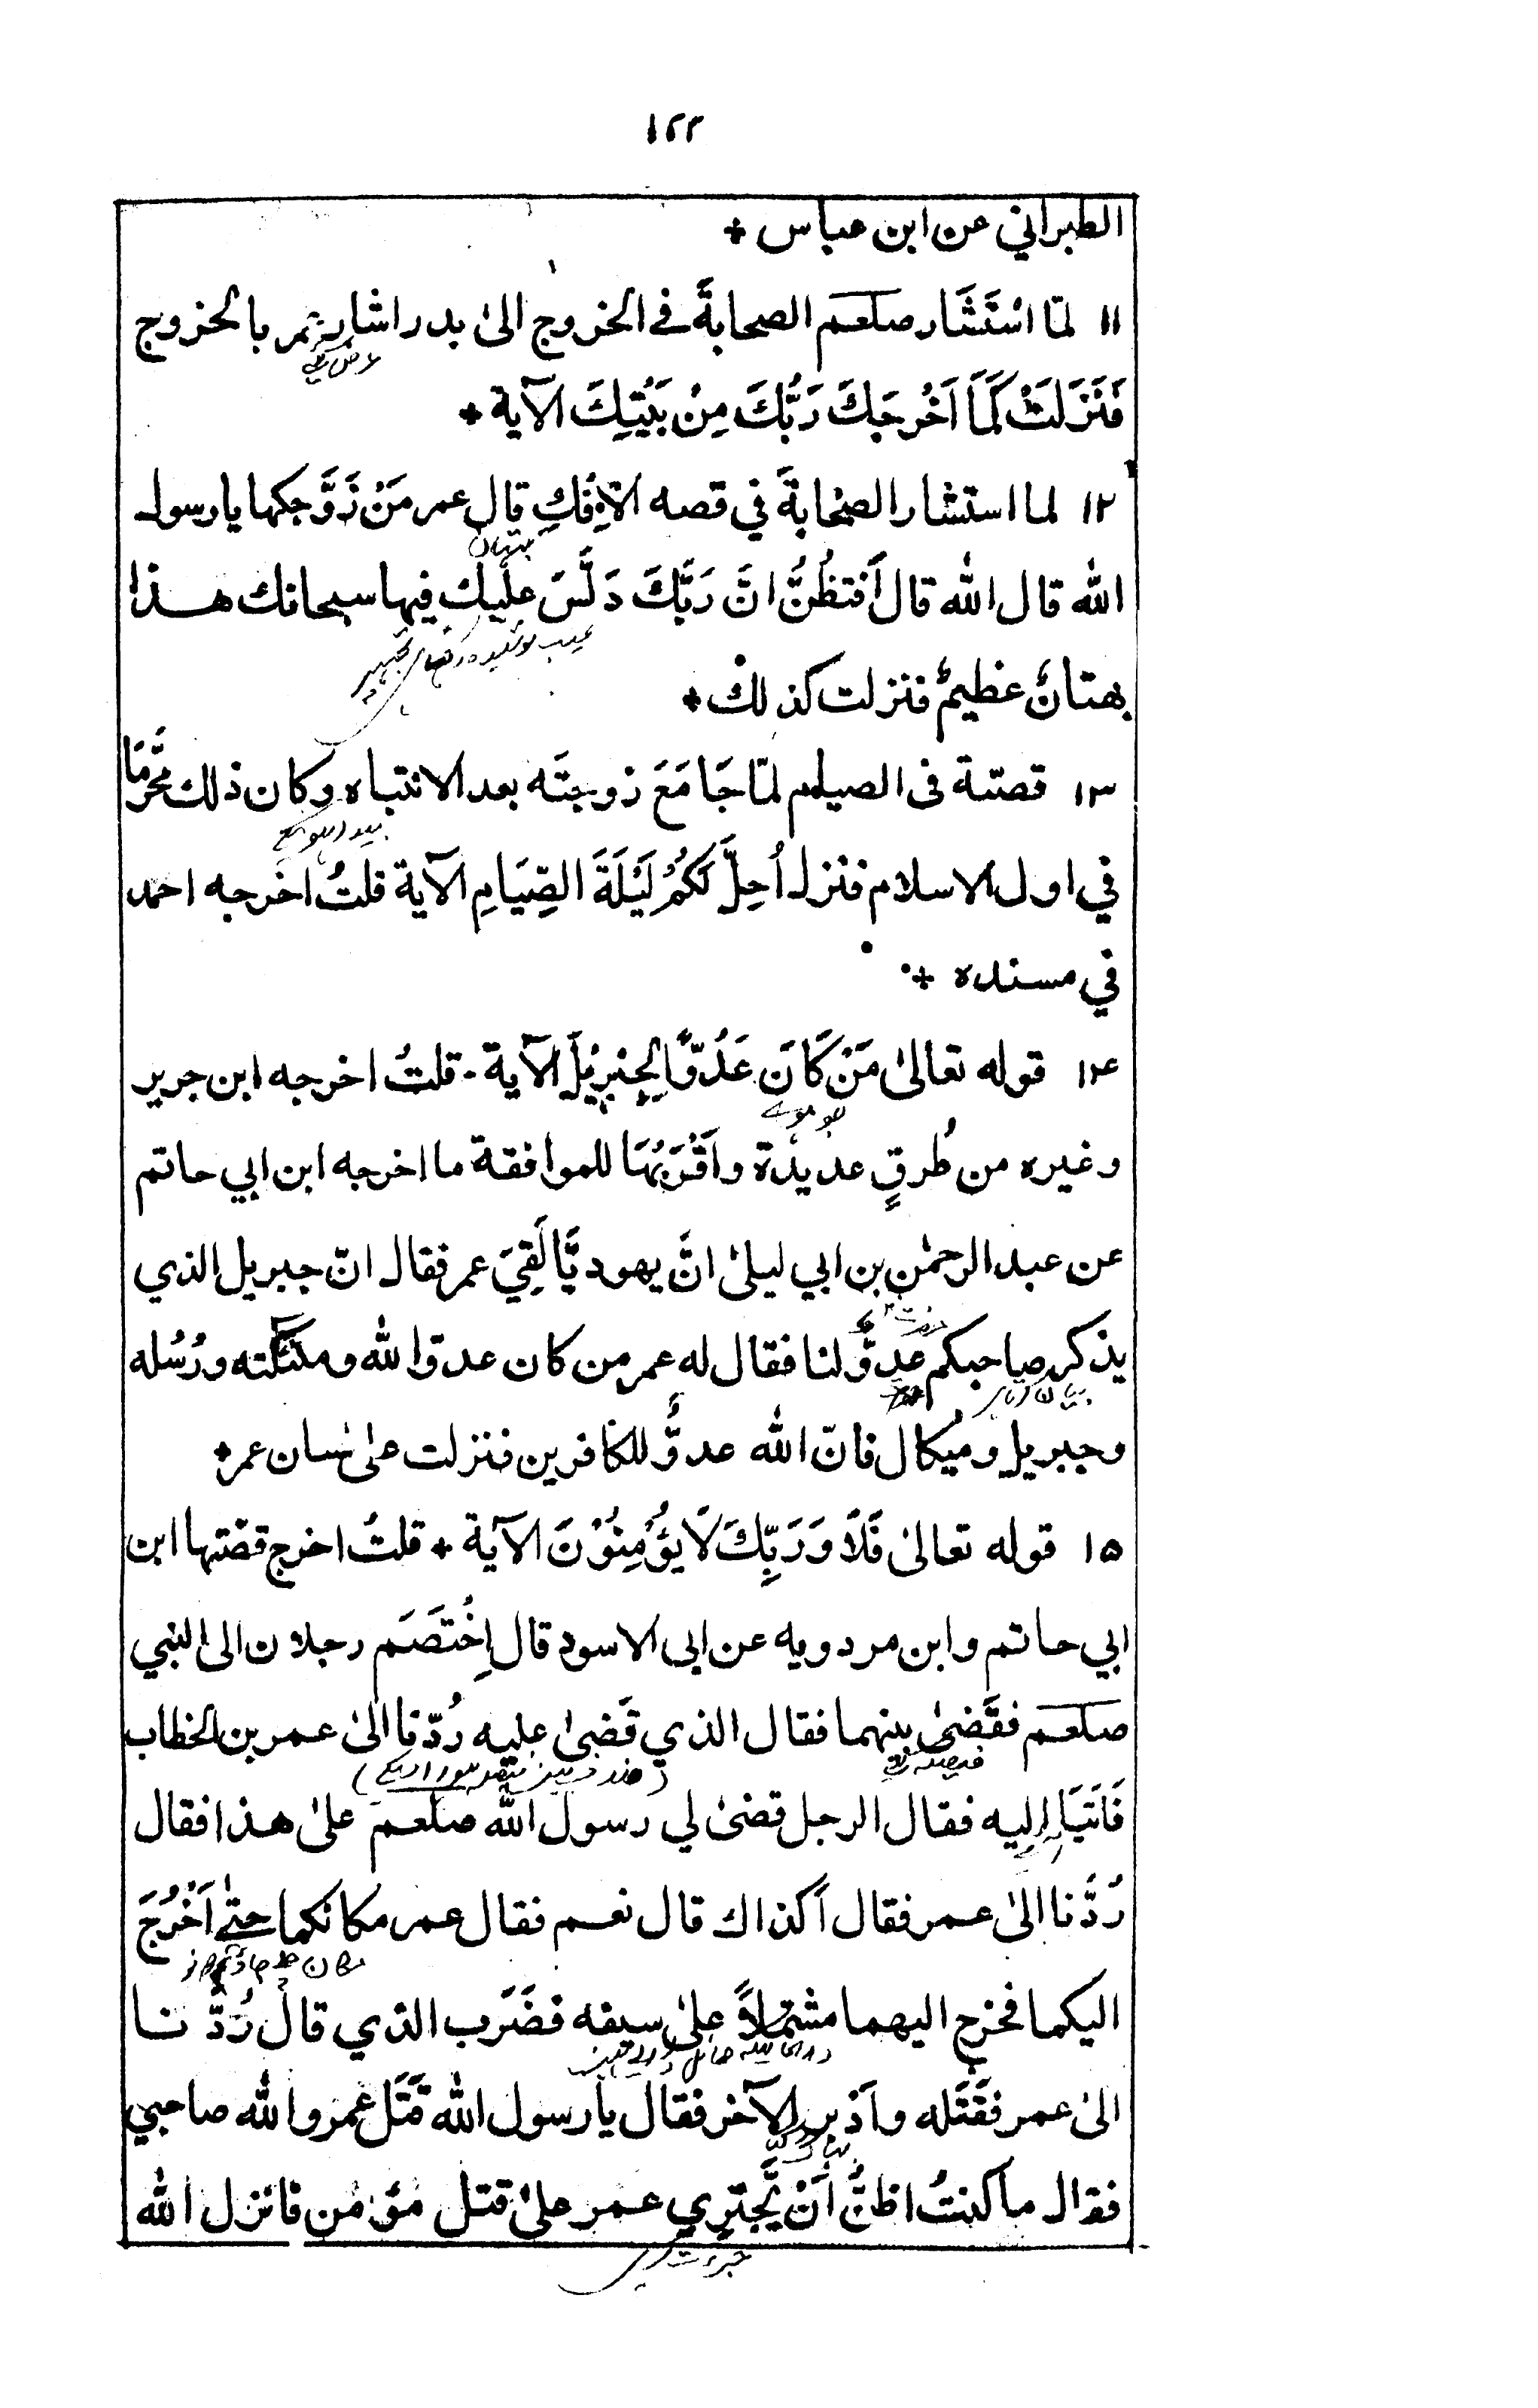 ١٢٣
الطبراني عن ابن عباس *
١١ لمّا اسْتَشَار صلعم الصحابةَ في الخروج الىٰ بدر اشار عمر بالخروج
فَنَزَلَتْ كَمَا اَخْرَجَكَ رَبُّكَ مِنْ بَيْتِكَ الآية *
١٢ لما استشار الصحابةَ في قصه الاِفْكِ قال عمر مَنْ زَوَّجكها يا رسول
بهتان
الله قال الله قال اَفَتظُنُّ انَّ رَبَّكَ دَلَّسَ عليك فيها سبحانك هـذا
بهتانٌ عظيمٌ فنزلت كذلك *
١٣ قصّتة فى الصيام لمّا جَامَعَ زوجتَه بعد الانتباه وكان ذلك مُحَرَّمًا
في اول الاسلام فنزل اُحِلَّ لَكُمْ لَيْلَةَ الصِّيَامِ الآية قلتُ اخرجه احمد
في مسنده *
١٤ قوله تعالىٰ مَنْ كَانَ عَدُوًّا لِجِبْرِيْلَ الآية - قلتُ اخرجه ابن جرير
وغيره من طُرقٍ عديدة واَقْرَبُهَا للموافقة ما اخرجه ابن ابي حاتم
عن عبد الرحمٰن بن ابي ليلىٰ انَّ يهوديًّا لَقِيَ عمر فقال انّ جبريل الذي
يذكر صاحبكم عدوٌّ لنا فقال له عمر من كان عدوّا لله وملٰئكته ورُسُله
وجبريل وميكال فانّ الله عدوٌّ للكافرين فنزلت علىٰ لسان عمر *
١٥ قوله تعالىٰ فَلَا وَرَبِّكَ لَا يُؤْمِنُوْنَ الآية * قلتُ اخرج قصّتها ابن
ابي حاتم وابن مردويه عن ابى الاسود قال اِخْتَصَمَ رجلان الى النبي
صلعم فقَضىٰ بينهما فقال الذي قَضىٰ عليه رُدّنا الىٰ عمر بن الخطاب
فَاَتَيَا اليه فقال الرجل قضىٰ لي رسول الله صلعم علىٰ هـذا فقال
رُدَّنا الىٰ عمر فقال اَكذاك قال نعم فقال عمر مكانكما حتىٰ اَخْرُجَ
اليكما فخرج اليهما مشتملاً علىٰ سيفه فضَرَب الذي قال رُدَّنا
الىٰ عمر فقَتَله واَدْبر الآخر فقال يا رسول الله قَتَلَ عمر والله صاحبي
فقال ما كنتُ اظنُّ اَنْ يَّجْتَرِي عمر علىٰ قتل مؤمن فانزل الله